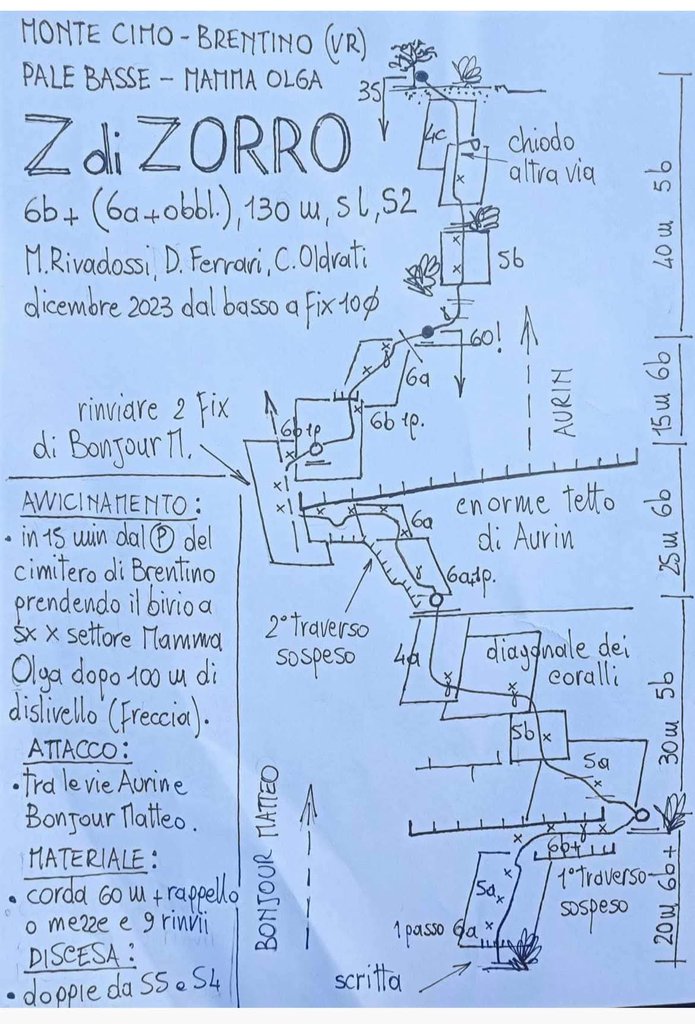 MONTE CIMO - BRENTINO (VR)
PALE BASSE - MAMMA OLGA
Z di ZORRO
6b+ (6a+obbl.), 130 m, SL, S2
M. Rivadossi, D. Ferrari, C. Oldrati
dicembre 2023 dal basso a Fix 10Ø
35
4c
chiodo
altra via
5b
60!
6a
6b 1p.
6b 1p
40 m 5b
15 m 6b
25 m 6b
30 m 5b
20 m 6b+
AURIN
rinviare 2 Fix
di Bonjour M.
enorme tetto
di Aurin
6a
6a 1p.
2° traverso
sospeso
4a
diagonale dei
coralli
5b
5a
6b+
1° traverso
sospeso
5a
1 passo 6a
scritta
BONJOUR MATTEO
AVVICINAMENTO:
• in 15 min dal P del
cimitero di Brentino
prendendo il bivio a
sx x settore Mamma
Olga dopo 100 m di
dislivello (Freccia).
ATTACCO:
• tra le vie Aurin e
Bonjour Matteo.
MATERIALE:
• corda 60 m + rappello
o mezze e 9 rinvii
DISCESA:
• doppie da S5 e S4